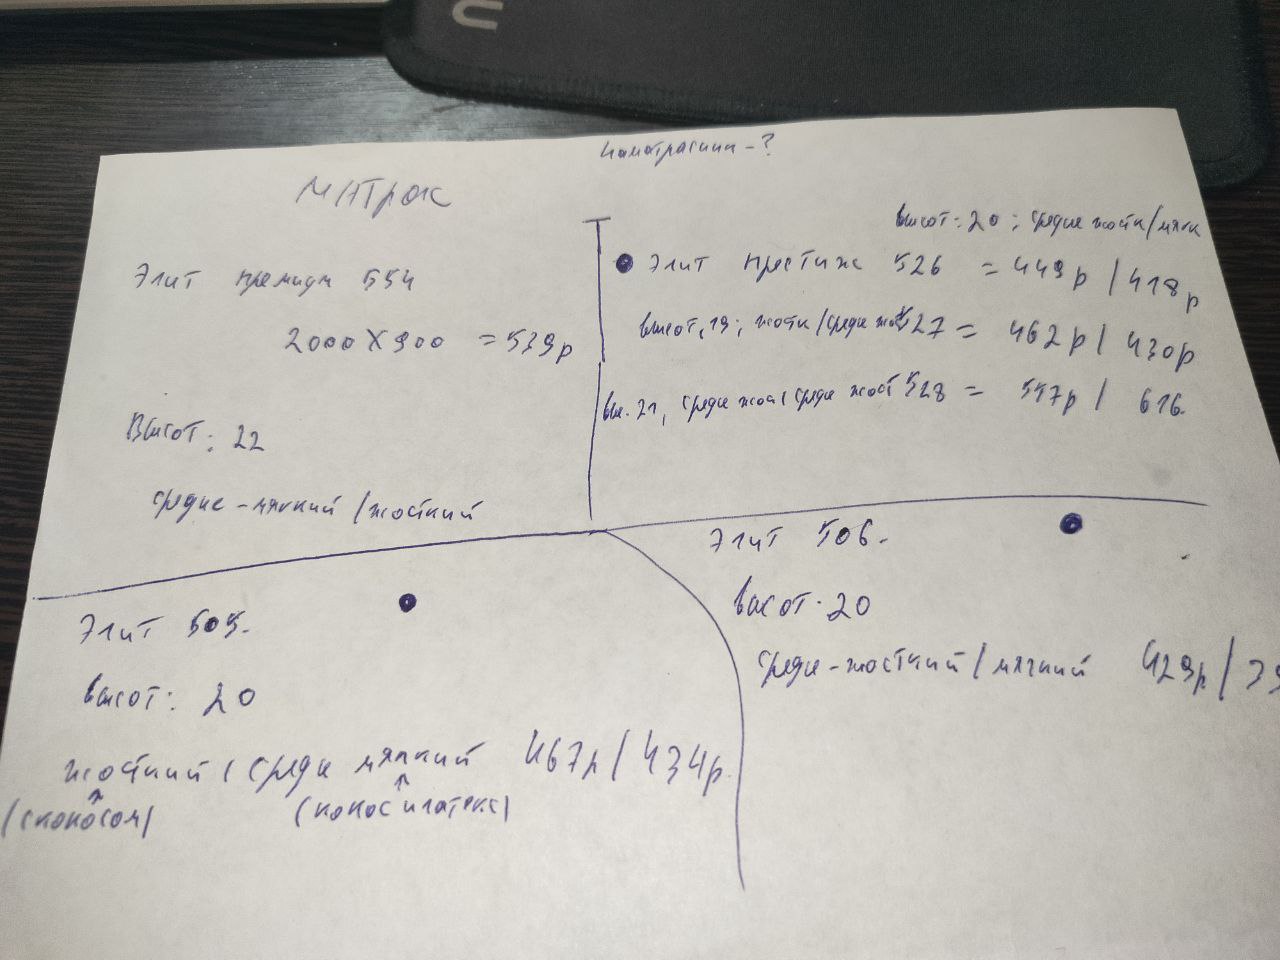 Наматрасник - ?
Матрас
Элит премиум 554
2000 X 900 = 539р
Высот: 22
средне - мягкий / жосткий
высот: 20 ; средне жостк / мягк
Элит престиж 526 = 449р / 418р
высот, 19; жостк / средне жост 527 = 462р / 430р
выс. 21, средне жост / средне жост 528 = 557р / 616.
Элит 505.
высот: 20
жосткий / средне мягкий 467р / 434р.
(с кокосом) (кокос и латекс)
Элит 506.
высот. 20
средне - жосткий / мягкий 429р /